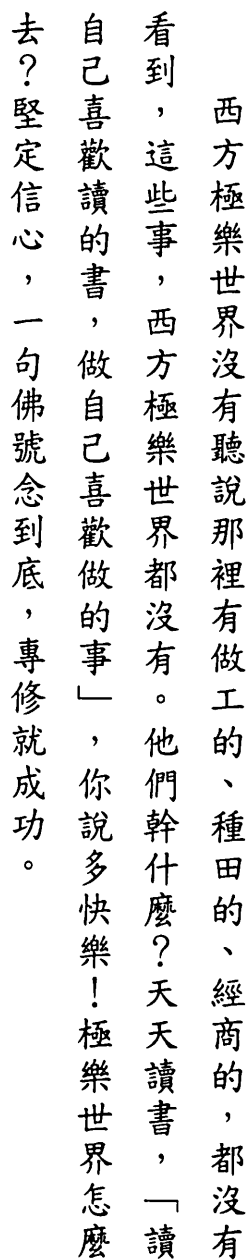 西方極樂世界沒有聽說那裡有做工的、種田的、經商的，都沒有
看到，這些事，西方極樂世界都沒有。他們幹什麼？天天讀書，「讀
自己喜歡讀的書，做自己喜歡做的事」，你說多快樂！極樂世界怎麼
去？堅定信心，一句佛號念到底，專修就成功。